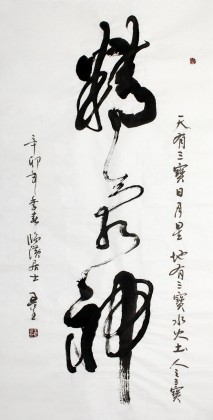 天有三寶日月星 地有三寶水火土 人之三寶
精氣神
辛卯年季春 居士